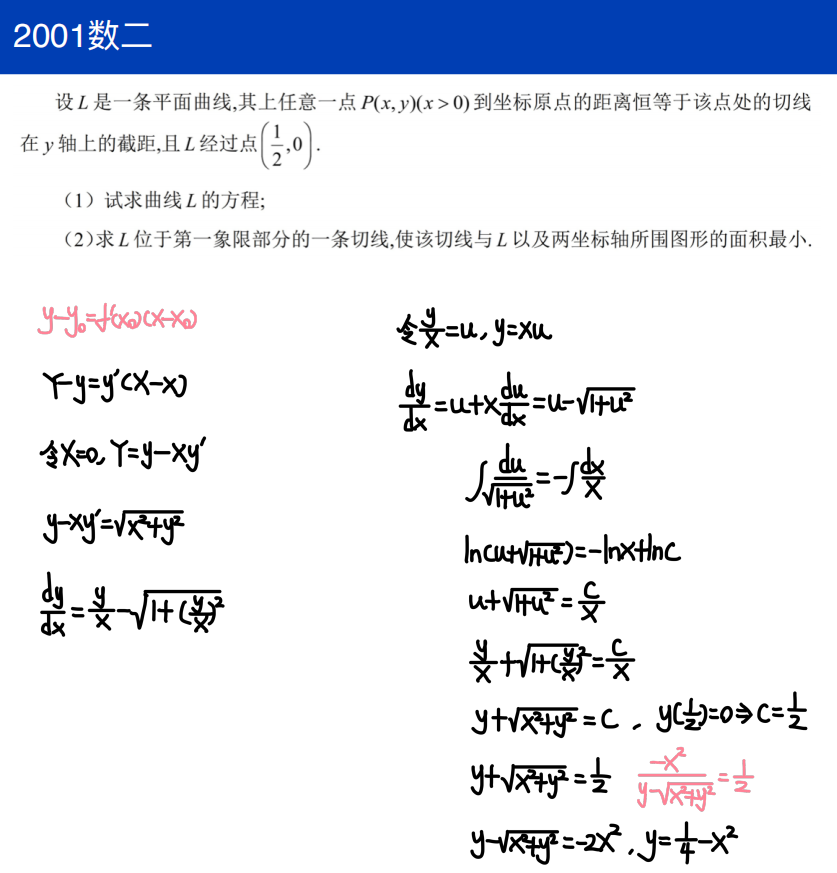 2001数二
设L是一条平面曲线,其上任意一点P(x,y)(x>0)到坐标原点的距离恒等于该点处的切线
在y轴上的截距,且L经过点(1/2,0).
（1）试求曲线L的方程;
（2)求L位于第一象限部分的一条切线,使该切线与L以及两坐标轴所围图形的面积最小.
y-y₀=f'(x₀)(x-x₀)
Y-y=y'(X-x)
令X=0, Y=y-xy'
y-xy'=√(x²+y²)
dy/dx=y/x-√(1+(y/x)²)
令y/x=u, y=xu
dy/dx=u+x du/dx=u-√(1+u²)
∫du/√(1+u²)=-∫dx/x
ln(u+√(1+u²))=-lnx+lnC
u+√(1+u²)=C/x
y/x+√(1+(y/x)²)=C/x
y+√(x²+y²)=C, y(1/2)=0⇒C=1/2
y+√(x²+y²)=1/2 -x²/(y-√(x²+y²))=1/2
y-√(x²+y²)=-2x², y=1/4-x²